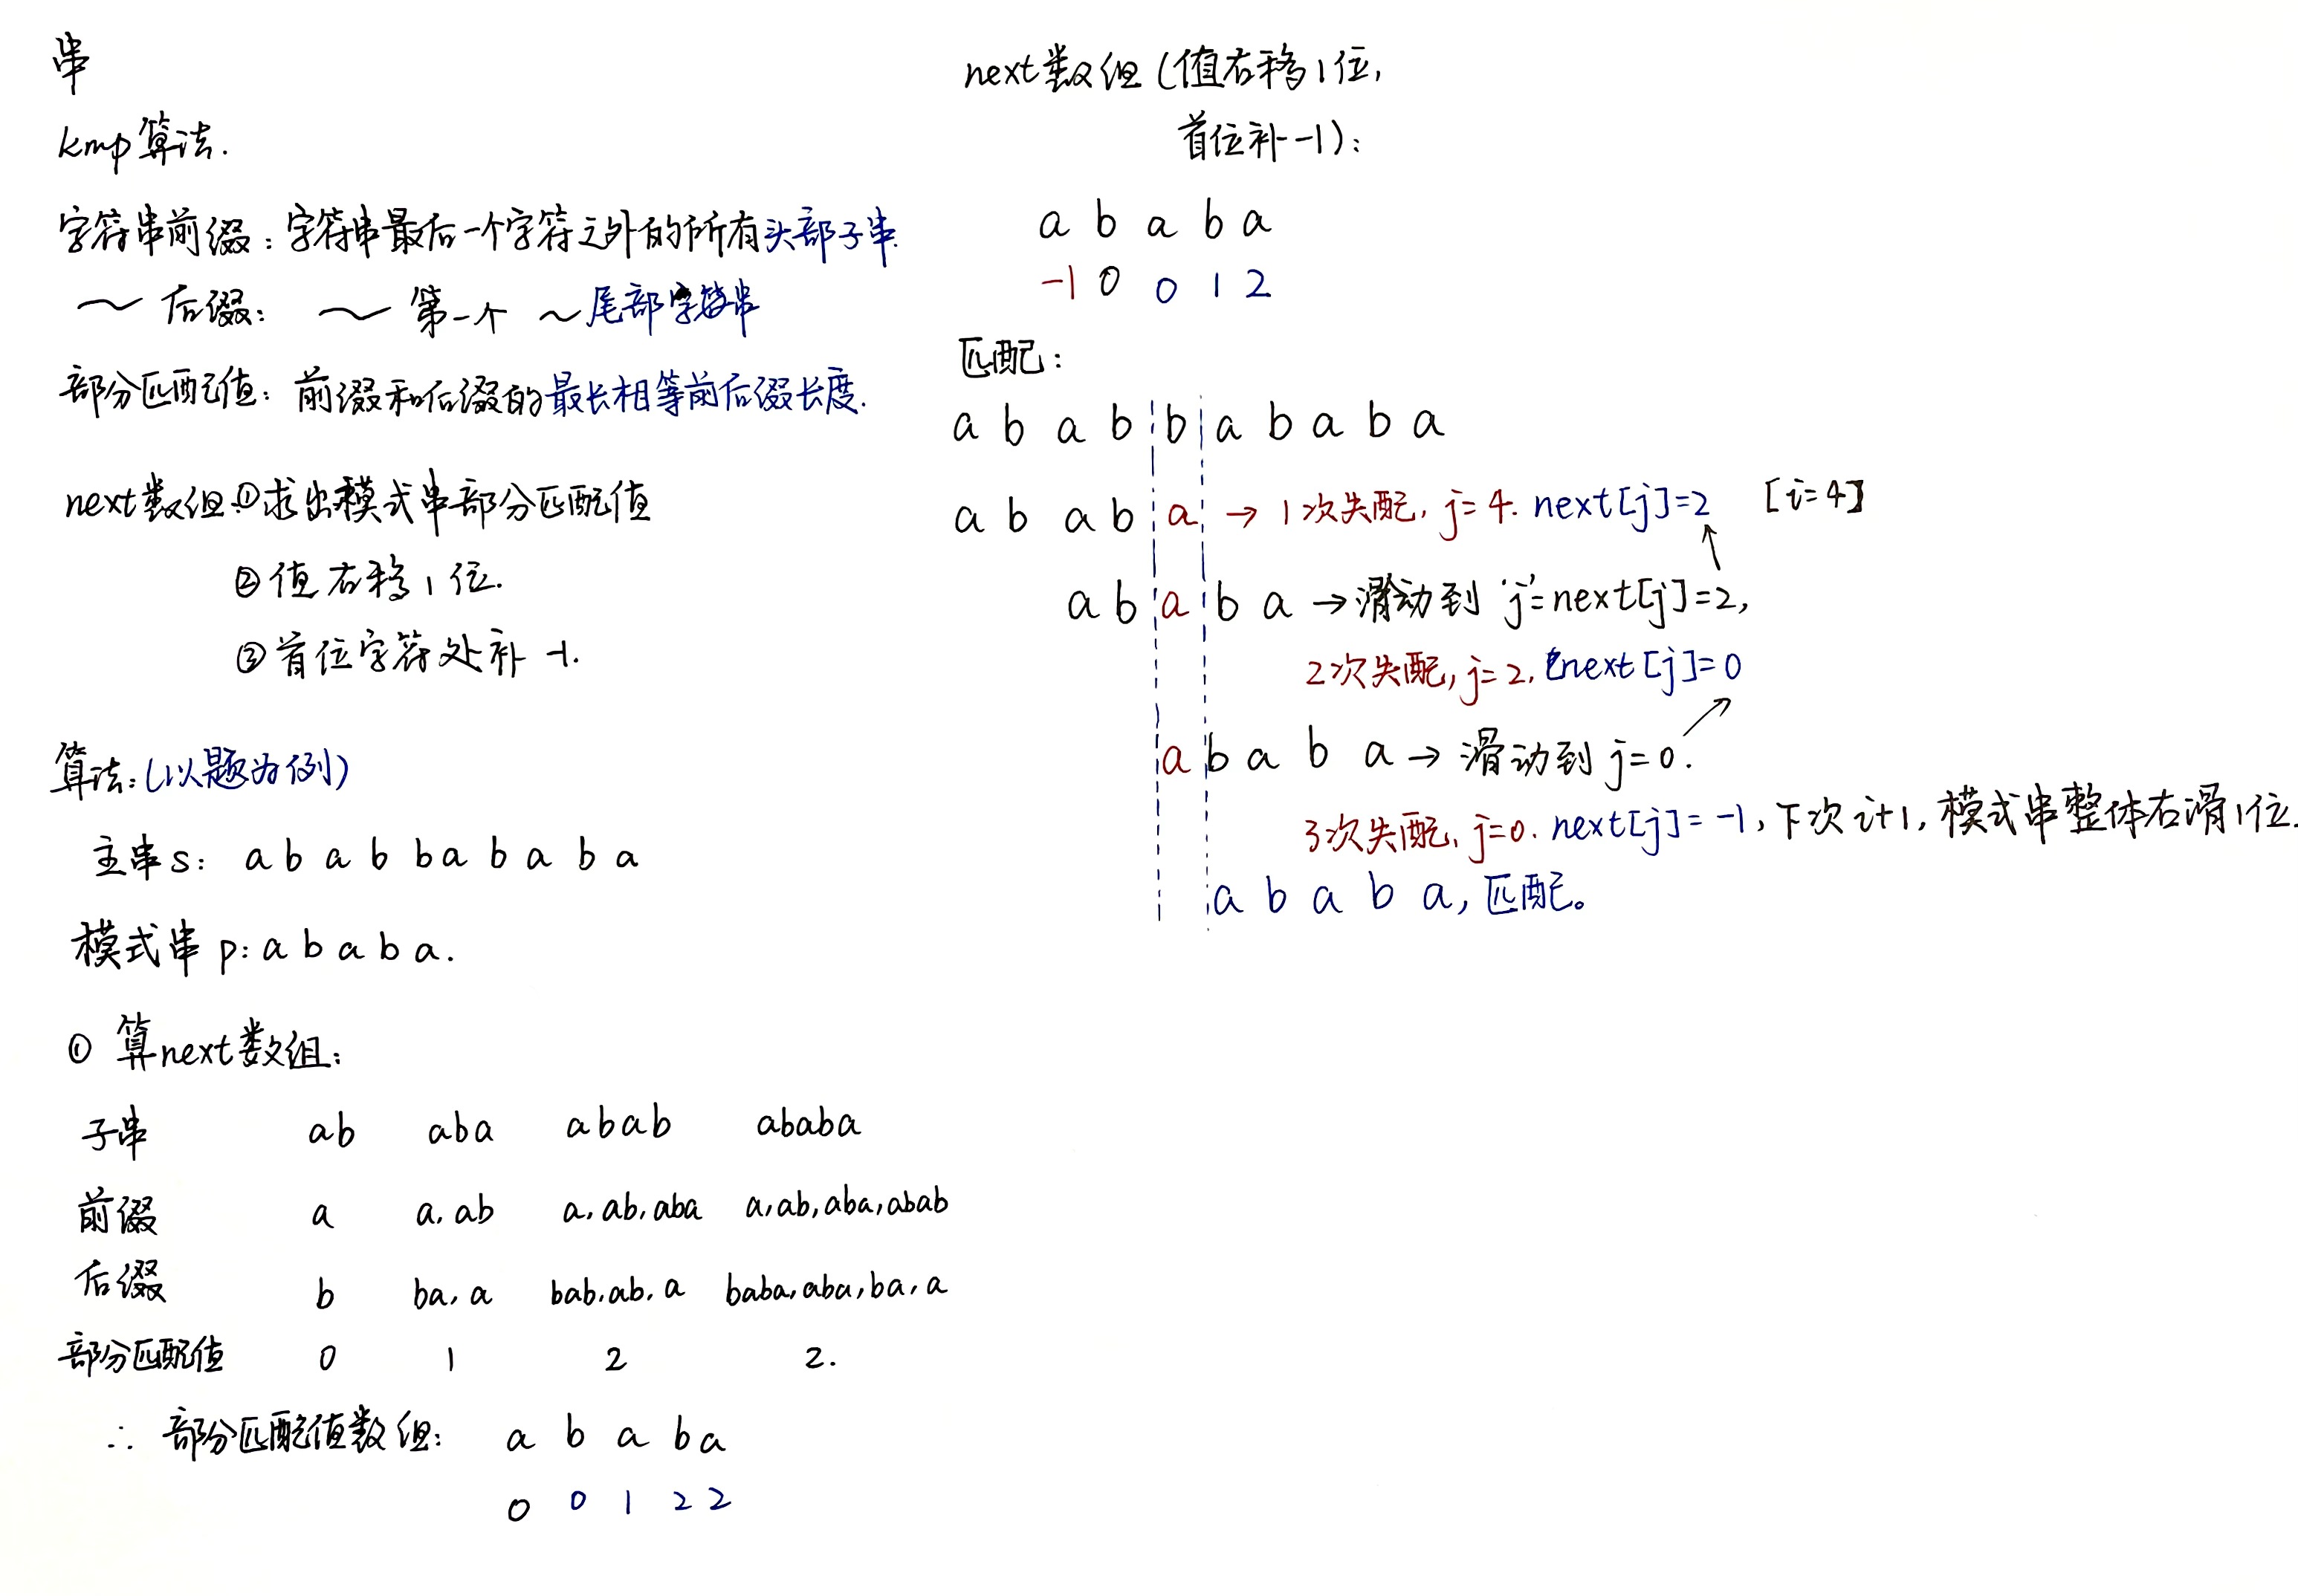 串
kmp算法.
字符串前缀：字符串最后一个字符之外的所有头部子串.
～后缀： ～第一个 ～尾部字符串
部分匹配值：前缀和后缀的最长相等前后缀长度.
next数组:①求出模式串部分匹配值
②值右移1位.
③首位字符处补 -1.
算法:(以题为例)
主串s: a b a b b a b a b a
模式串 p: a b a b a.
① 算next数组:
子串 ab aba abab ababa
前缀 a a, ab a, ab, aba a, ab, aba, abab
后缀 b ba, a bab, ab, a baba, aba, ba, a
部分匹配值 0 1 2 2.
∴ 部分匹配值数组: a b a b a
0 0 1 2 2
next数组(值右移1位,
首位补-1):
a b a b a
-1 0 0 1 2
匹配:
a b a b b a b a b a
a b a b a → 1次失配, j=4. next[j]=2 [i=4]
a b a b a → 滑动到 'j'=next[j]=2,
2次失配, j=2, next[j]=0
a b a b a → 滑动到 j=0.
3次失配, j=0. next[j]=-1, 下次 i+1, 模式串整体右滑1位.
a b a b a, 匹配。